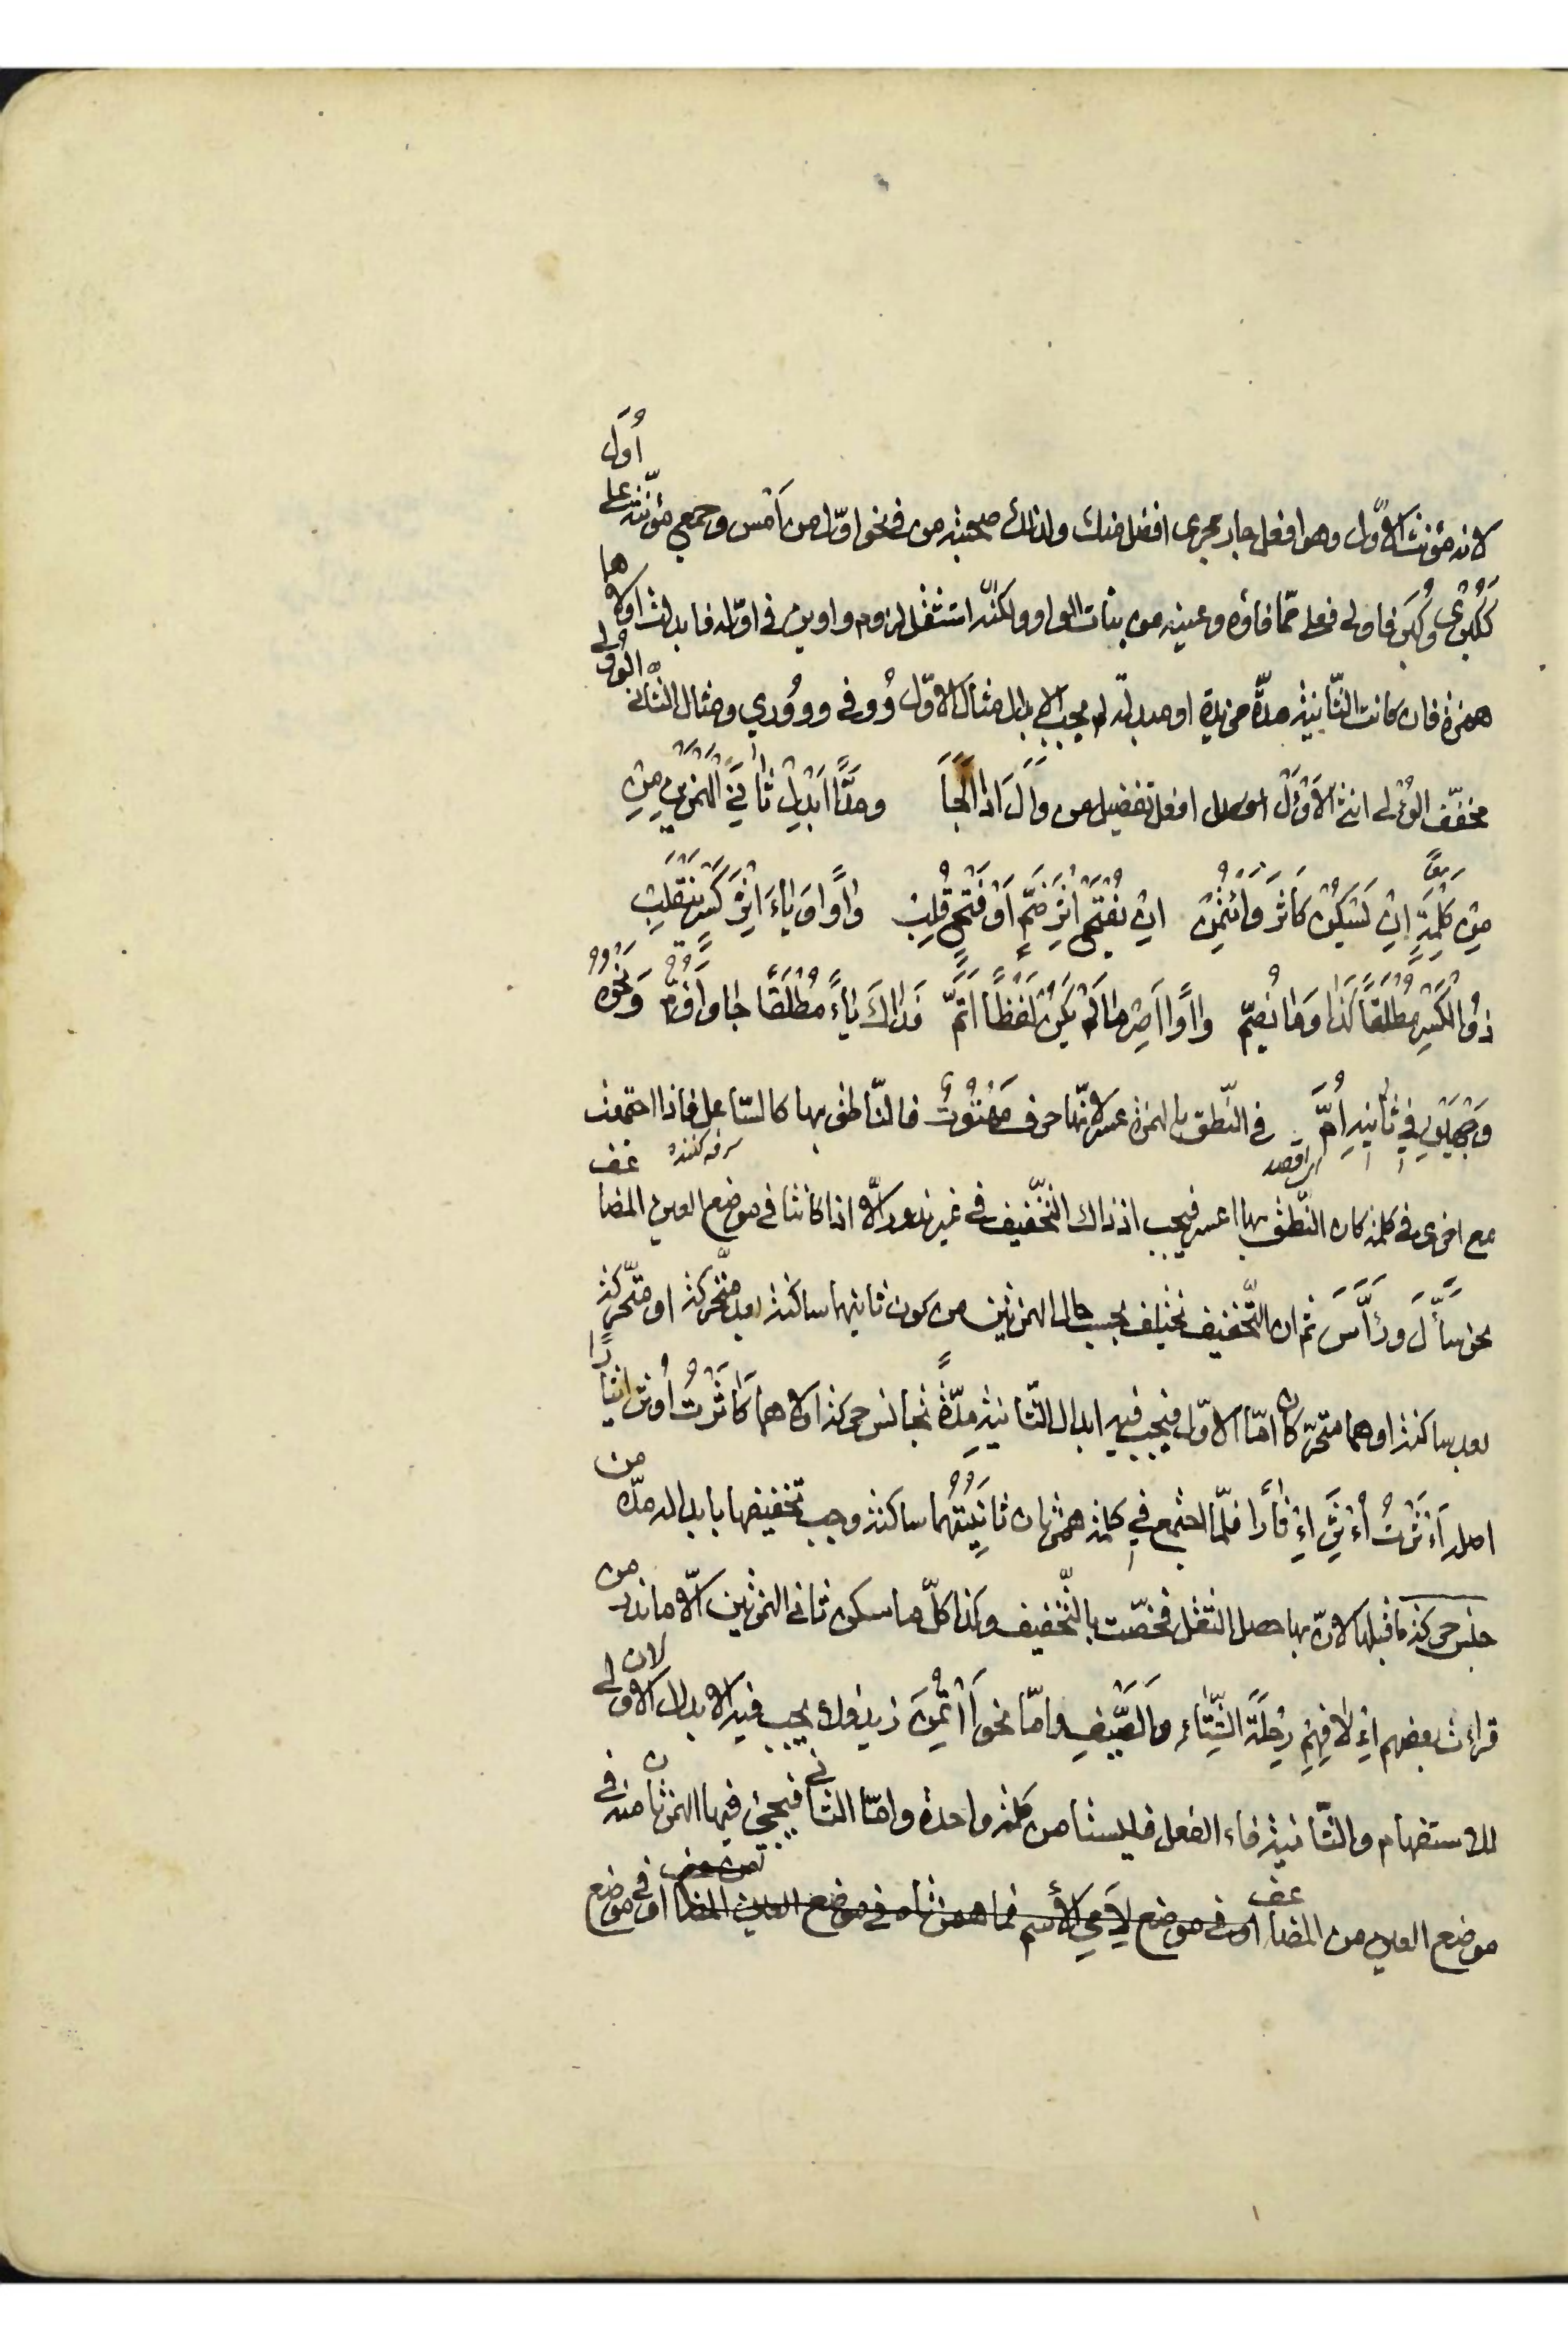 لانه مؤنث الاوّل وهو افعل جار مجرى افضل منك ولذلك صحبته من في نحو اوّل من امس وجمعي مؤنّثه على أُوَل
ككُبرى وكُبَر فاولى فعلى ممّا فاؤه وعينه من بنات الواو ولكنّه استثقل لزوم واوين في اوّله فابدلت اولاها
همزة فان كانت الثّانية مدّة مزيدة او مبدلة لم يجب الابدال مثال الاوّل وُوفي وووُري ومثال الثّاني الوُولى
مخفّف الوُءلى انثى الاَوْءَل افعل تفضيل من وَاَلَ اذا لَجَأَ ومدًّا ابدِل ثانيَ الهمزين مِن
مِن كلمةٍ ان يَسكُن كآثَرَ وائتُمِن ان يُفتَح اثرَ ضمٍّ او فتحٍ قُلِب واوًا وياءً اثرَ كسرٍ ينقلب
ذو الكسرِ مُطلقًا كذا وما يُضمّ واوًا اَصِر ما لم يكن لفظًا اَتَمّ فذاك ياءً مُطلقًا جا واَؤُمّ ونحوُه
وجهَين في ثانيه اُمّ في النّطق بالهمزة عسر لانّها حرف مهتُوتٌ فالنّاطق بها كالسّاعل فاذا اجتمعت
اى اقصد
سرفه كننده
مع اخرى في كلمة كان النّطق بها اعسر فيجب اذ ذاك التّخفيف في غير ندور الّا اذا كانتا في موضع العين المضاعف
نحو سأّل ورأّس ثم ان التّخفيف يختلف بحسب حال الهمزتين من كون ثانيهما ساكنة بعد متحركة او متحّركة
بعد ساكنة او هما متحرّكان امّا الاوّل فيجب فيه ابدال الثّانية مِدّةً تجانس حركة اولاهما كآثَرْتُ اُوثِر ايثارًا
اصله اَءْثَرْتُ اُءْثِرُ اِءْثارًا فلمّا اجتمع في كلمة همزتان ثانيتُهُما ساكنة وجب تخفيفها بابداله مدّة من
جنس حركة ما قبلها لانّ بها حصل الثقل فخصّت بالتّخفيف وكذا كلّ ما سكن ثاني الهمزتين الّا ما ندر من
قراءت بعضهم اِءْلافِهِم رِحلَةَ الشِّتاء والصَّيْفِ وامّا نحو أَأْتَمَنَ زيد فلا يجب فيه الابدال لان الاولى
للاستفهام والثّانية فاء الفعل فليستا من كلمة واحدة وامّا الثّاني فيجئ فيما الهمزتان منه في
موضع العين من المضاعف او في موضع لامي الاسم فما همزتاه في موضع العين المضا او في موضع